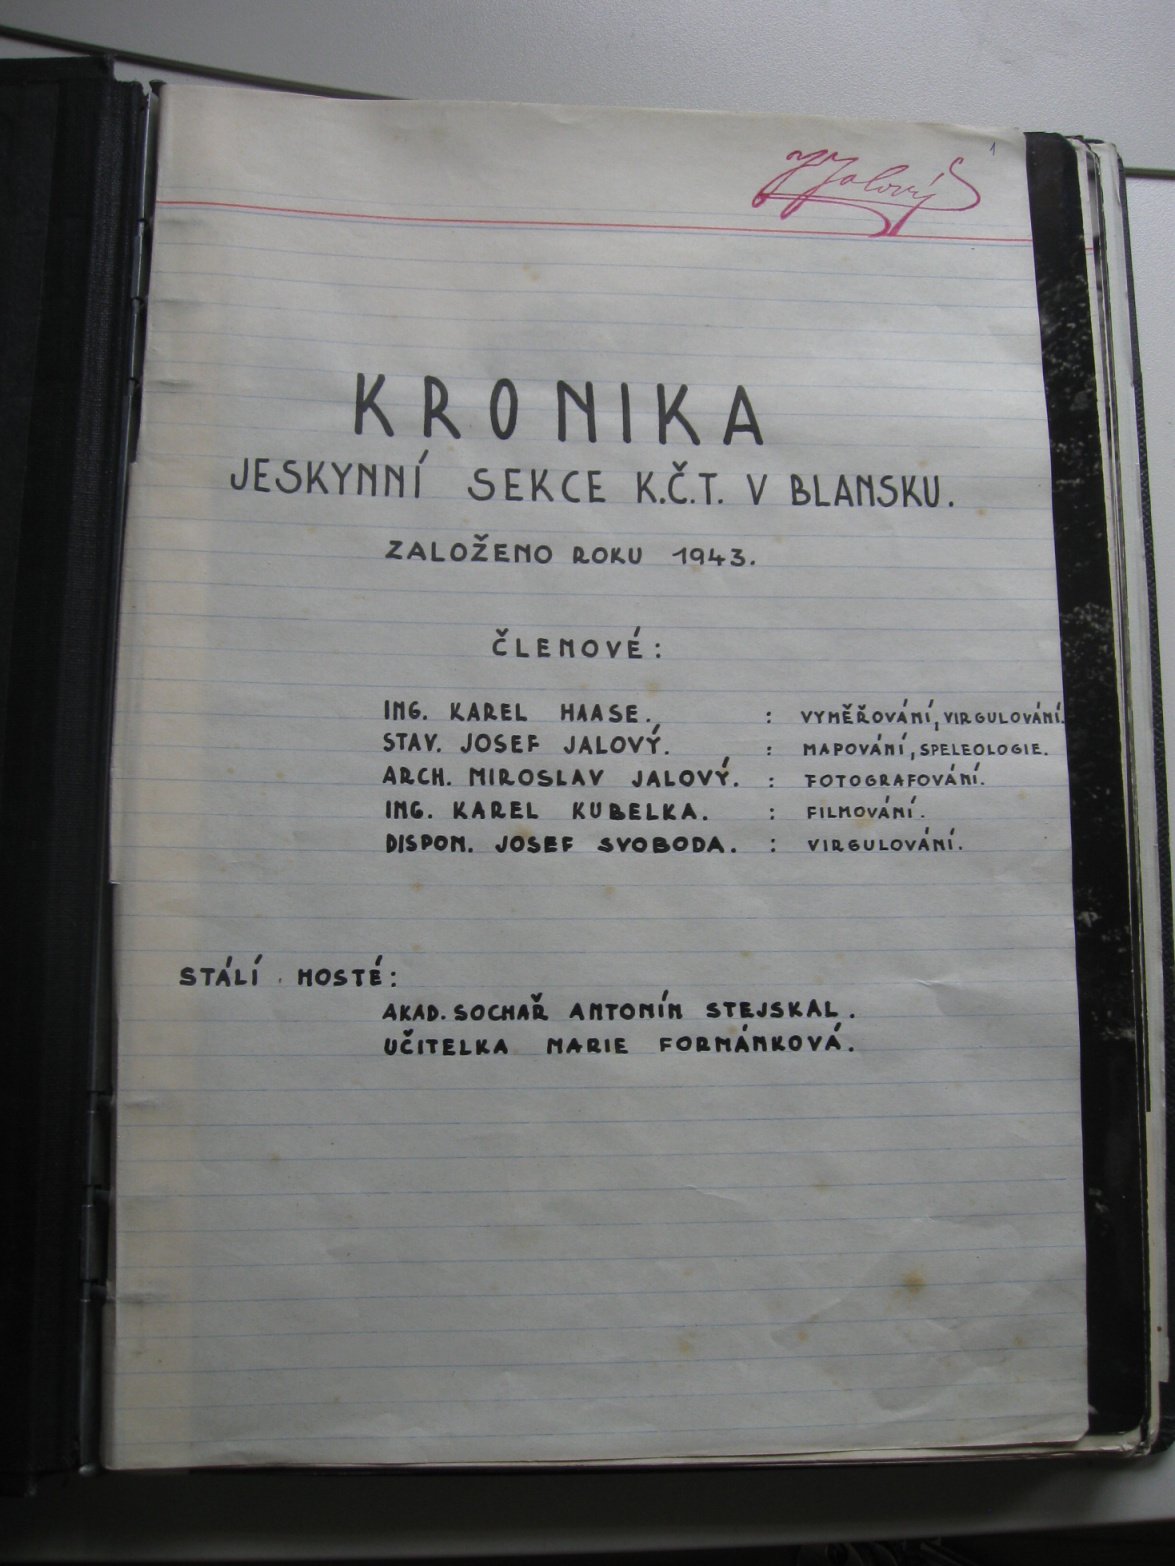 1
J Jalový
KRONIKA
JESKYNNÍ SEKCE K.Č.T. V BLANSKU.
ZALOŽENO ROKU 1943.
ČLENOVÉ:
ING. KAREL HAASE. : VYMĚŘOVÁNÍ, VIRGULOVÁNÍ.
STAV. JOSEF JALOVÝ. : MAPOVÁNÍ, SPELEOLOGIE.
ARCH. MIROSLAV JALOVÝ. : FOTOGRAFOVÁNÍ.
ING. KAREL KUBELKA. : FILMOVÁNÍ.
DISPON. JOSEF SVOBODA. : VIRGULOVÁNÍ.
STÁLÍ HOSTÉ:
AKAD. SOCHAŘ ANTONÍN STEJSKAL.
UČITELKA MARIE FORMÁNKOVÁ.